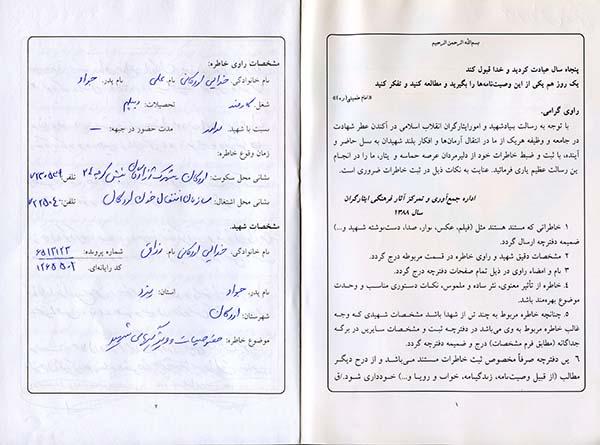 بسم‌الله الرحمن الرحیم
پنجاه سال عبادت کردید و خدا قبول کند
یک روز هم یکی از این وصیت‌نامه‌ها را بگیرید و مطالعه کنید و تفکر کنید
«امام خمینی(ره)»
راوی گرامی.
با توجه به رسالت بنیادشهید و امورایثارگران انقلاب اسلامی در آکندن عطر شهادت
در جامعه و وظیفه هریک از ما در انتقال آرمان‌ها و افکار بلند شهیدان به نسل حاضر و
آینده، با ثبت و ضبط خاطرات خود از دلیرمردان عرصه حماسه و ایثار، ما را در انجام
این رسالت عظیم یاری فرمائید. عنایت به نکات ذیل در ثبت خاطرات ضروری است.
اداره جمع‌آوری و تمرکز آثار فرهنگی ایثارگران
سال ۱۳۸۸
۱ خاطراتی که مستند هستند مثل (فیلم، عکس، نوار، صدا، دست‌نوشته شهید و...)
ضمیمه دفترچه ارسال گردد.
۲ مشخصات دقیق شهید و راوی خاطره در قسمت مربوطه درج گردد.
۳ نام و امضاء راوی در ذیل تمام صفحات دفترچه درج گردد.
۴. خاطره از تأثیر معنوی، نثر ساده و ملموس، نکات دستوری مناسب و وحدت
موضوع بهره‌مند باشد.
۵. چنانچه خاطره مربوط به چند تن از شهدا باشد مشخصات شهیدی که وجه
غالب خاطره مربوط به وی می‌باشد در دفترچه ثبت و مشخصات سایرین در برگه
جداگانه (مطابق فرم مشخصات) درج و ضمیمه دفترچه گردد.
۶ این دفترچه صرفاً مخصوص ثبت خاطرات مستند می‌باشد و از درج دیگر
مطالب (از قبیل وصیت‌نامه، زندگینامه، خواب و رویا و...) خودداری شود.
۱
مشخصات راوی خاطره:
نام خانوادگی: خدایی اردکانی نام: علی نام پدر: جواد
شغل: کارمند تحصیلات: دیپلم
نسبت با شهید: برادر مدت حضور در جبهه: –
زمان وقوع خاطره:
نشانی محل سکونت: اردکان تلفن:
نشانی محل اشتغال: سازمان انتقال خون اردکان تلفن:
مشخصات شهید:
نام خانوادگی: خدایی اردکانی نام: رزاق شماره پرونده: ۶۵۱۲۱۲۳
کد رایانه‌ای:
نام پدر: جواد استان: یزد
شهرستان: اردکان
موضوع خاطره: خصوصیات و ویژگیهای شهید
۲